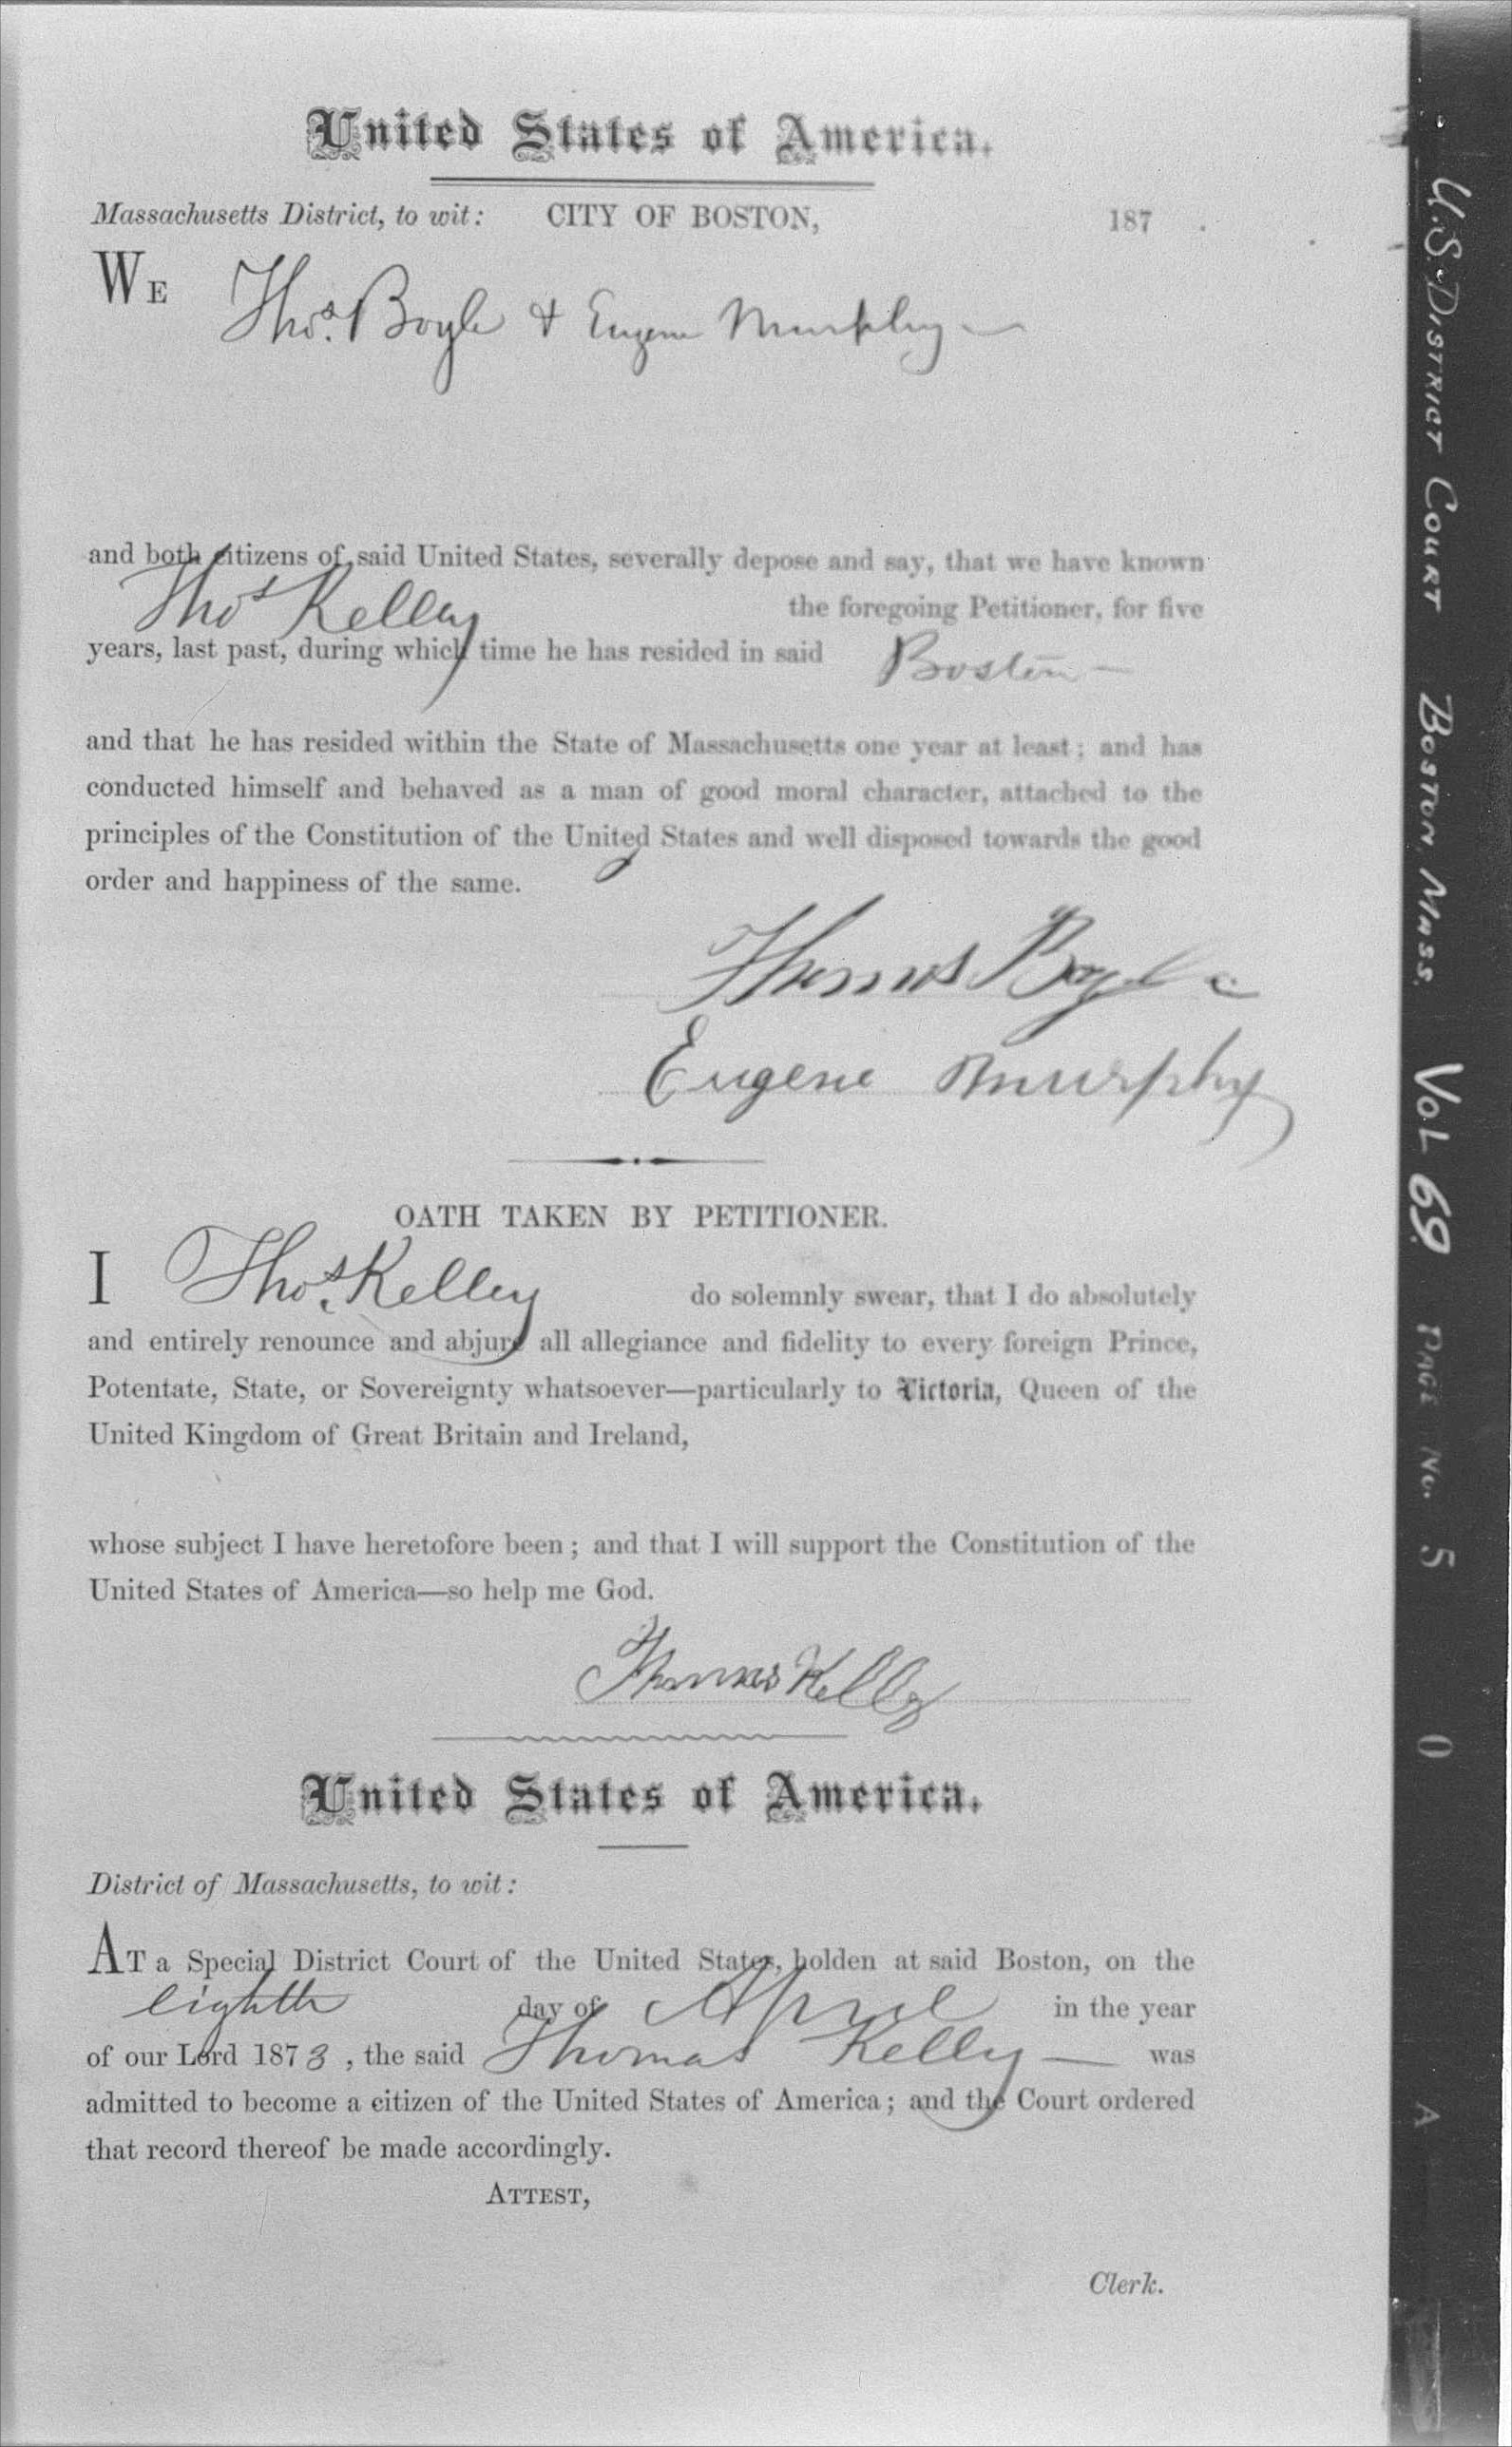 United States of America.
Massachusetts District, to wit: CITY OF BOSTON, 187 .
WE Thos. Boyle & Eugene Murphy
and both citizens of said United States, severally depose and say, that we have known
Thos Kelley the foregoing Petitioner, for five
years, last past, during which time he has resided in said Boston
and that he has resided within the State of Massachusetts one year at least; and has
conducted himself and behaved as a man of good moral character, attached to the
principles of the Constitution of the United States and well disposed towards the good
order and happiness of the same.
Thomas Boyle
Eugene Murphy
OATH TAKEN BY PETITIONER.
I Thos. Kelley do solemnly swear, that I do absolutely
and entirely renounce and abjure all allegiance and fidelity to every foreign Prince,
Potentate, State, or Sovereignty whatsoever—particularly to Victoria, Queen of the
United Kingdom of Great Britain and Ireland,
whose subject I have heretofore been; and that I will support the Constitution of the
United States of America—so help me God.
Thomas Kelly
United States of America.
District of Massachusetts, to wit:
AT a Special District Court of the United States, holden at said Boston, on the
eighth day of April in the year
of our Lord 1873, the said Thomas Kelly — was
admitted to become a citizen of the United States of America; and the Court ordered
that record thereof be made accordingly.
ATTEST,
Clerk.
U.S. DISTRICT COURT BOSTON MASS. VOL 69 PAGE No. 5 0 A